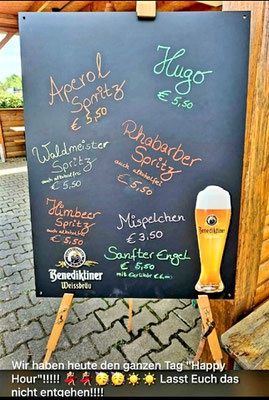 Hugo
€ 5,50
Aperol
Spritz
€ 5,50
Waldmeister
Spritz
auch alkoholfrei
€ 5,50
Rhabarber
Spritz
auch alkoholfrei
€ 5,50
Himbeer
Spritz
auch alkoholfrei
€ 5,50
Mispelchen
€ 3,50
Sanfter Engel
€ 5,50
mit
Benediktiner
Weissbräu
Wir haben heute den ganzen Tag "Happy
Hour"!!!!! 💃💃🥳🥳☀️☀️ Lasst Euch das
nicht entgehen!!!!